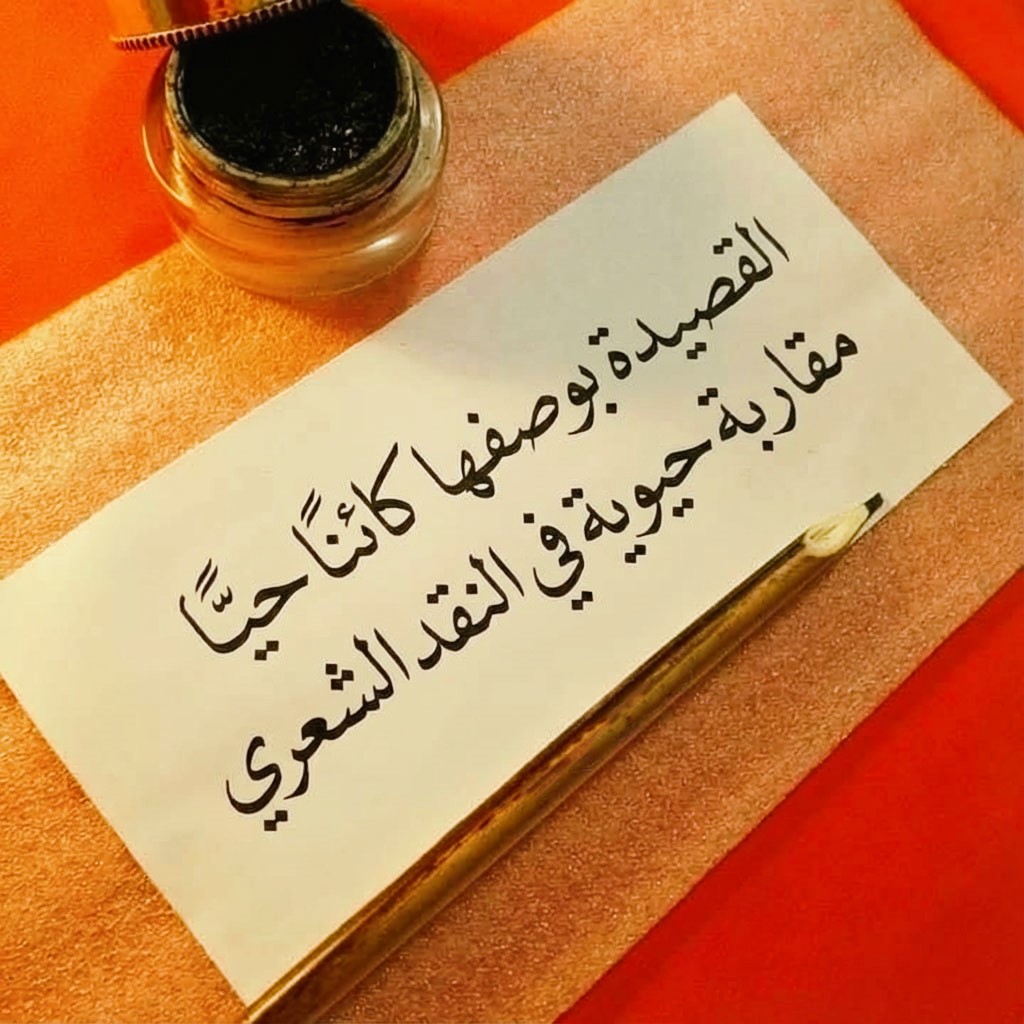 القصيدة بوصفها كائنًا حيًّا
مقاربة حيوية في النقد الشعري